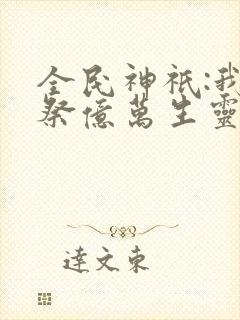 全民神祇:我
祭億萬生靈
達文東